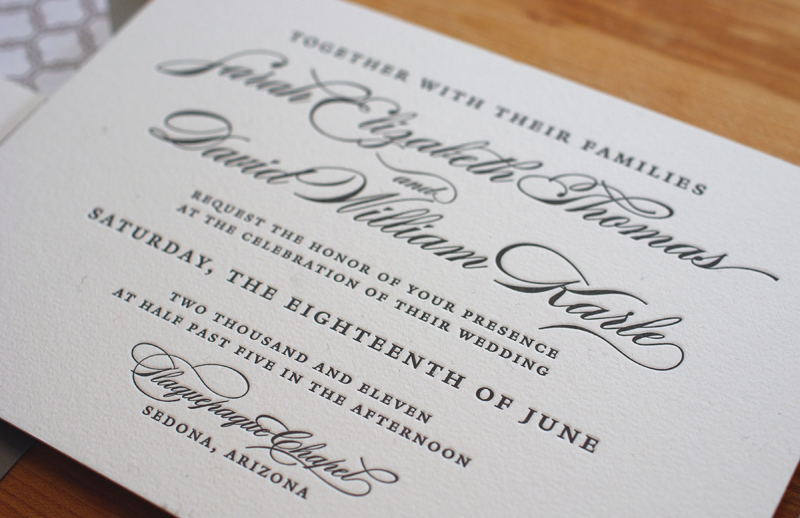 TOGETHER WITH THEIR FAMILIES
Sarah Elizabeth Thomas
and
David William Karle
REQUEST THE HONOR OF YOUR PRESENCE
AT THE CELEBRATION OF THEIR WEDDING
SATURDAY, THE EIGHTEENTH OF JUNE
TWO THOUSAND AND ELEVEN
AT HALF PAST FIVE IN THE AFTERNOON
Tlaquepaque Chapel
SEDONA, ARIZONA